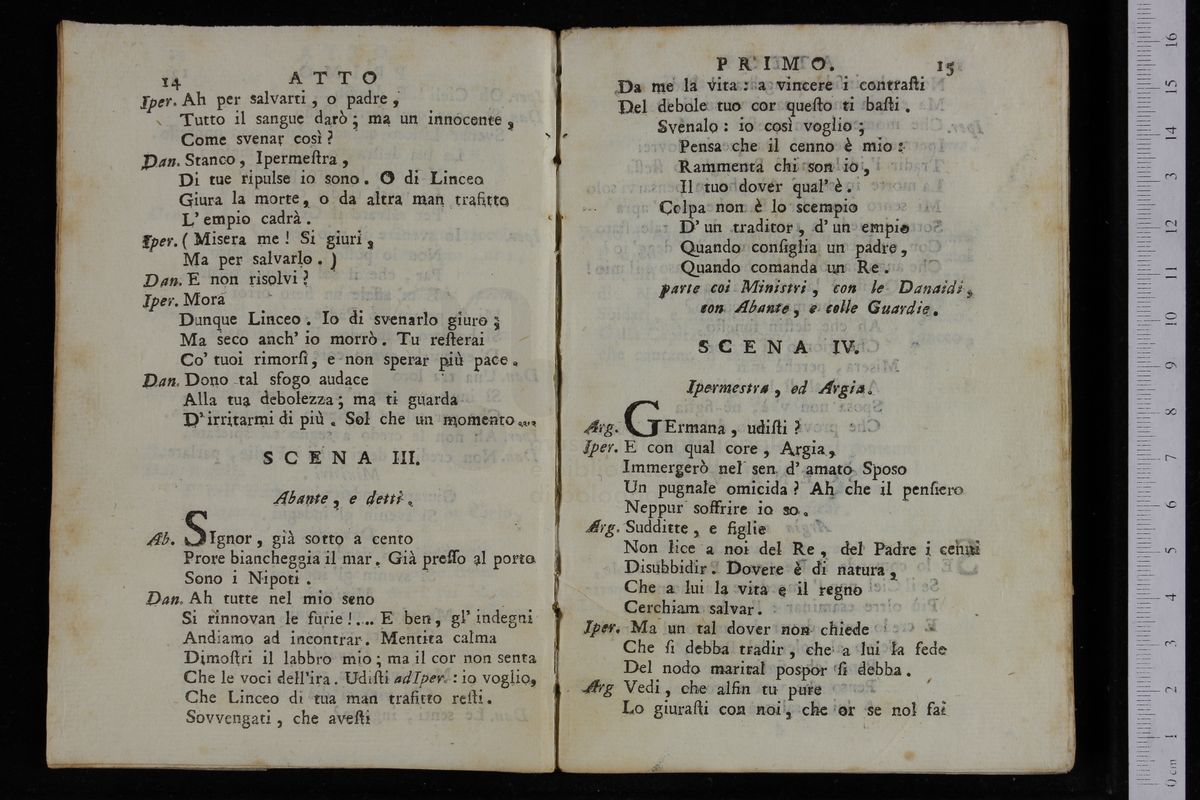 14 ATTO
Iper. Ah per salvarti, o padre,
Tutto il sangue darò; ma un innocente,
Come svenar così?
Dan. Stanco, Ipermeſtra,
Di tue ripulse io sono. O di Linceo
Giura la morte, o da altra man trafitto
L' empio cadrà.
Iper. (Misera me! Si giuri,
Ma per salvarlo.)
Dan. E non risolvi?
Iper. Mora
Dunque Linceo. Io di svenarlo giuro;
Ma seco anch' io morrò. Tu reſterai
Co' tuoi rimorſi, e non sperar più pace.
Dan. Dono tal sfogo audace
Alla tua debolezza; ma ti guarda
D'irritarmi di più. Sol che un momento....
SCENA III.
Abante, e detti.
Ab. SIgnor, già sotto a cento
Prore biancheggia il mar. Già preſſo al porto
Sono i Nipoti.
Dan. Ah tutte nel mio seno
Si rinnovan le furie!.... E ben, gl' indegni
Andiamo ad incontrar. Mentita calma
Dimoſtri il labbro mio; ma il cor non senta
Che le voci dell'ira. Udiſti ad Iper.: io voglio,
Che Linceo di tua man trafitto reſti.
Sovvengati, che aveſti
PRIMO. 15
Da me la vita: a vincere i contraſti
Del debole tuo cor queſto ti baſti.
Svenalo: io così voglio;
Pensa che il cenno è mio:
Rammenta chi son io,
Il tuo dover qual' è.
Colpa non è lo scempio
D' un traditor, d' un empio
Quando conſiglia un padre,
Quando comanda un Re.
parte coi Ministri, con le Danaidi,
con Abante, e colle Guardie.
SCENA IV.
Ipermestra, ed Argia.
Arg. GErmana, udiſti?
Iper. E con qual core, Argia,
Immergerò nel sen d' amato Sposo
Un pugnale omicida? Ah che il penſiero
Neppur soffrire io so.
Arg. Sudditte, e figlie
Non lice a noi del Re, del Padre i cenni
Disubbidir. Dovere è di natura,
Che a lui la vita e il regno
Cerchiam salvar.
Iper. Ma un tal dover non chiede
Che ſi debba tradir, che a lui la fede
Del nodo marital pospor ſi debba.
Arg Vedi, che alfin tu pure
Lo giuraſti con noi, che or se nol fai